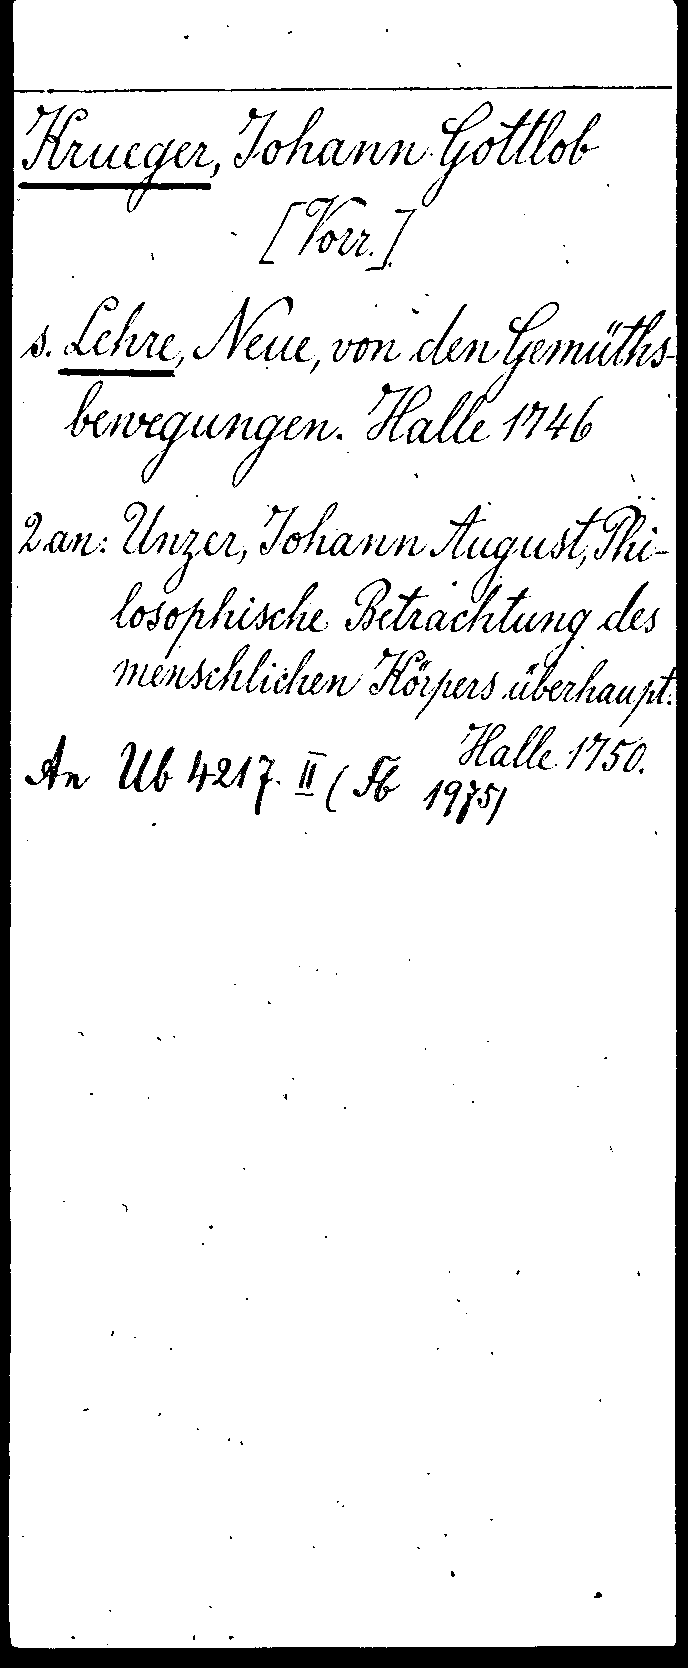 Krueger, Johann Gottlob
[Vorr.]
s. Lehre, Neue, von den Gemüths-
bewegungen. Halle 1746
2 an: Unzer, Johann August, Phi-
losophische Betrachtung des
menschlichen Körpers überhaupt.
Halle 1750.
An Ub 4217. II (Fb 1975)